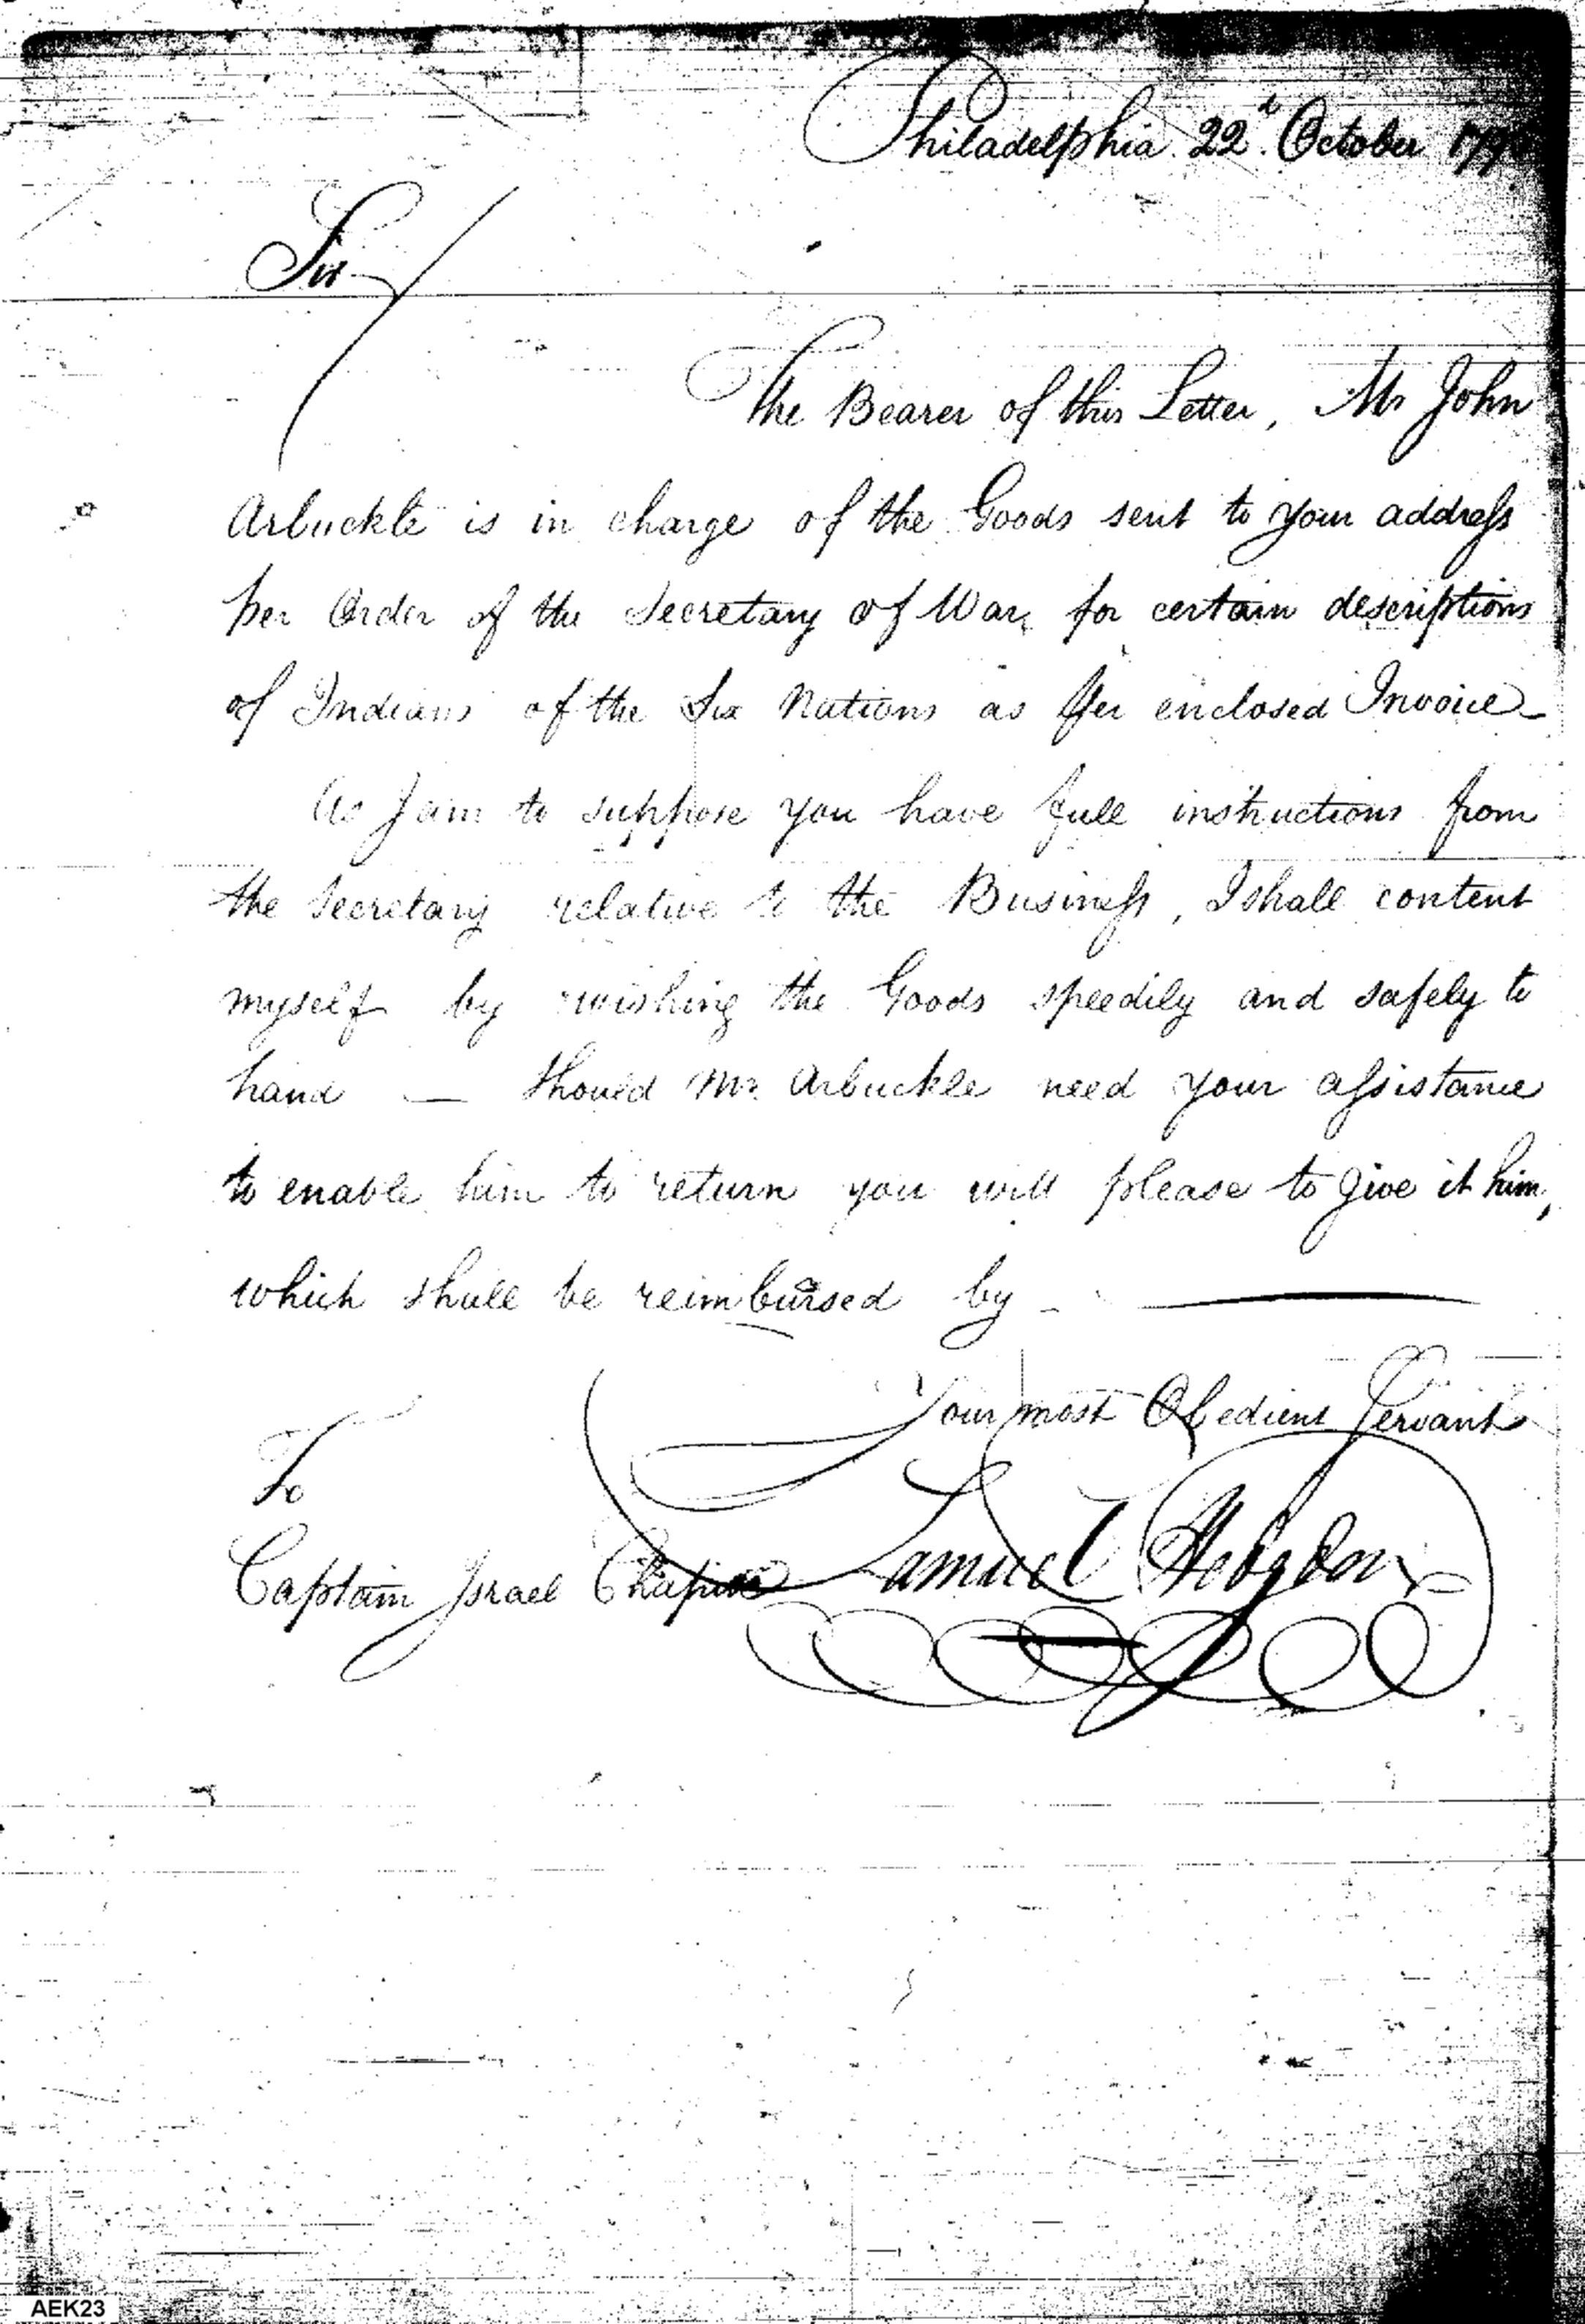 Philadelphia 22d. October 179
Sir
The Bearer of this Letter, Mr John
Arbuckle is in charge of the Goods sent to your address
per Order of the Secretary of War, for certain descriptions
of Indians of the Six Nations as Per enclosed Invoice
As I am to suppose you have full instructions from
the Secretary relative to the Business, I shall content
myself by wishing the Goods speedily and safely to
hand — Should Mr. Arbuckle need your assistance
to enable him to return you will please to give it him,
which shall be reimbursed by —
Your most Obedient Servant
To
Captain Israel Chapin Samuel Hodgdon
AEK23